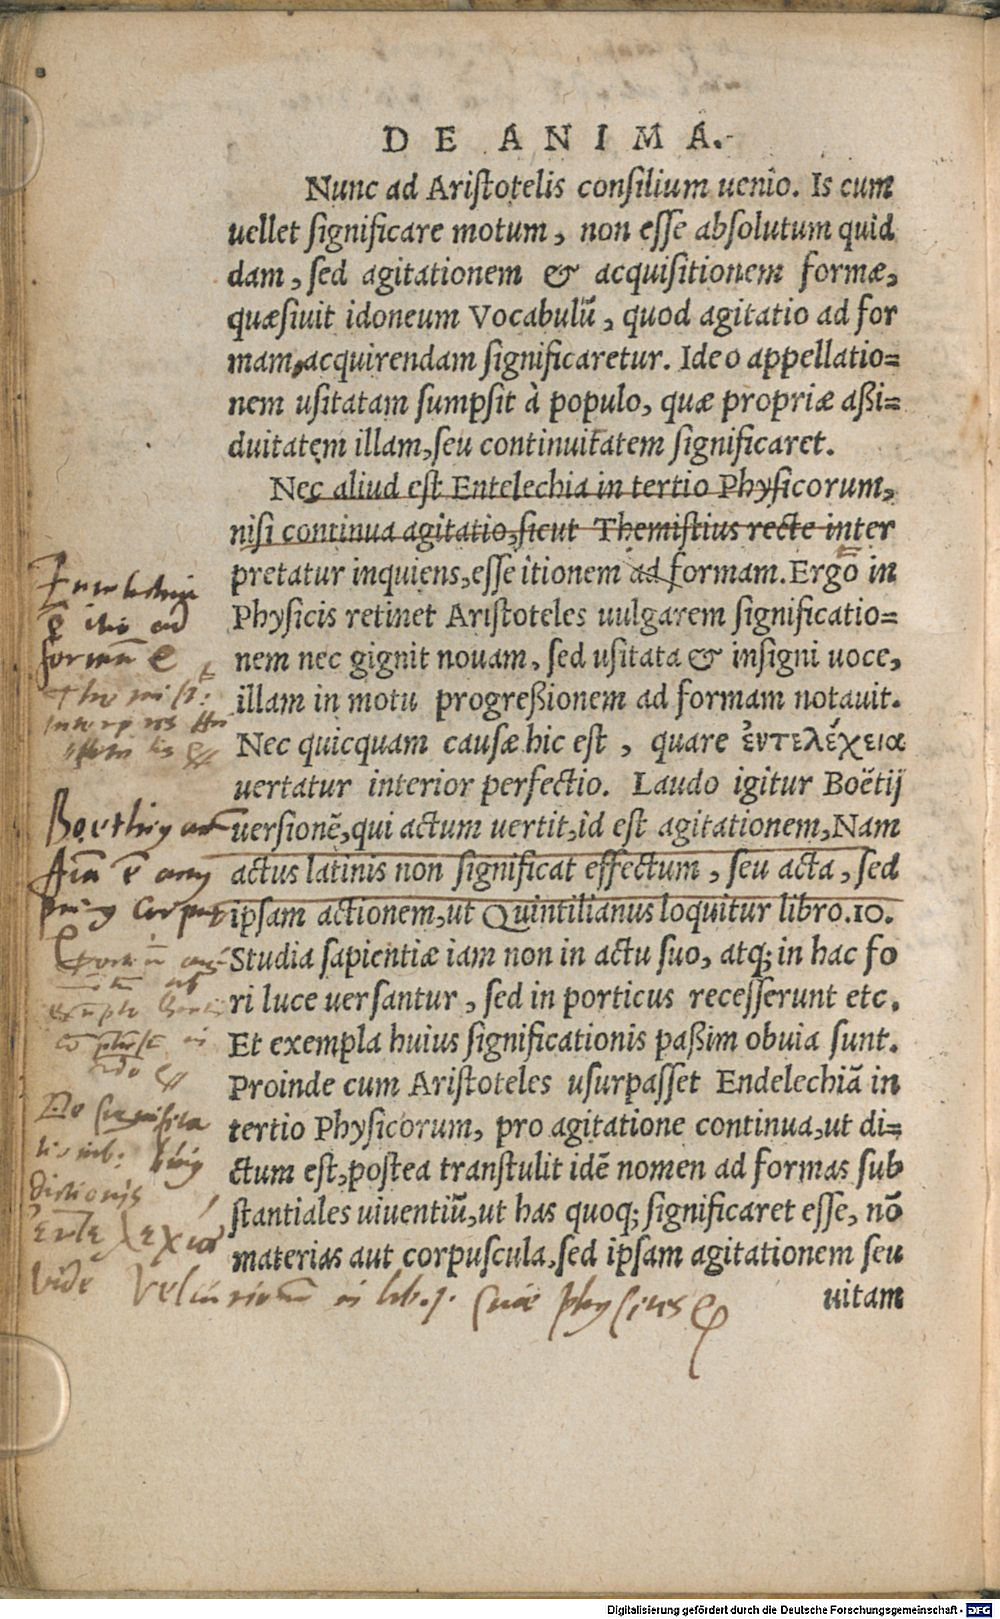 DE ANIMA.
Nunc ad Ariſtotelis conſilium uenio. Is cum
uellet ſignificare motum, non eſſe abſolutum quid
dam, ſed agitationem & acquiſitionem formæ,
quæſiuit idoneum Vocabulũ, quod agitatio ad for
mam acquirendam ſignificaretur. Ideo appellatio=
nem uſitatam ſumpſit à populo, quæ propriæ aßi=
duitatem illam, ſeu continuitatem ſignificaret.
Nec aliud eſt Entelechia in tertio Phyſicorum,
niſi continua agitatio, ſicut Themiſtius recte inter
pretatur inquiens, eſſe itionem ad formam. Ergo in
Phyſicis retinet Ariſtoteles uulgarem ſignificatio=
nem nec gignit nouam, ſed uſitata & inſigni uoce,
illam in motu progreßionem ad formam notauit.
Nec quicquam cauſæ hic eſt, quare ἐντελέχεια
uertatur interior perfectio. Laudo igitur Boëtij
uerſionẽ, qui actum uertit, id eſt agitationem, Nam
actus latinis non ſignificat effectum, ſeu acta, ſed
ipſam actionem, ut Quintilianus loquitur libro.10.
Studia ſapientiæ iam non in actu ſuo, atq; in hac fo
ri luce uerſantur, ſed in porticus receſſerunt etc.
Et exempla huius ſignificationis paßim obuia ſunt.
Proinde cum Ariſtoteles uſurpaſſet Endelechiã in
tertio Phyſicorum, pro agitatione continua, ut di=
ctum eſt, poſtea tranſtulit idẽ nomen ad formas ſub
ſtantiales uiuentiũ, ut has quoq; ſignificaret eſſe, nõ
materias aut corpuſcula, ſed ipſam agitationem ſeu
uitam
ad
formã
De
dictionis
ἐντελέχεια
vide
in lib. 1. suæ
Digitalisierung gefördert durch die Deutsche Forschungsgemeinschaft - DFG